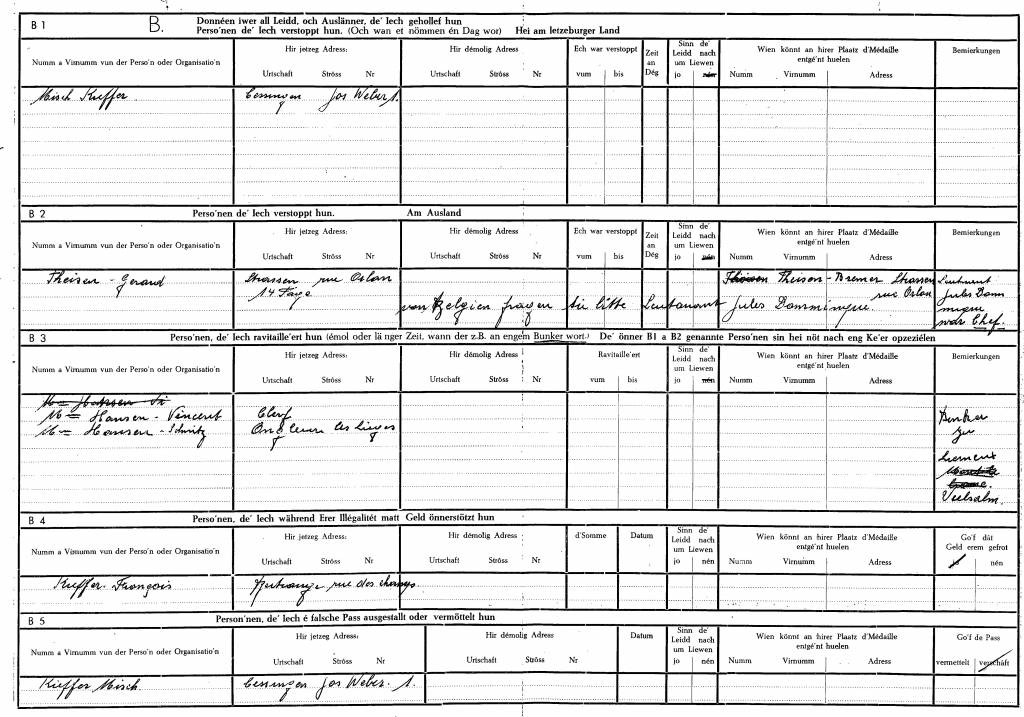 B 1
B.
Donnéen iwer all Leidd, och Auslänner, de' Iech gehollef hun
Perso'nen de' Iech verstoppt hun. (Och wan et nömmen én Dag wor) Hei am letzeburger Land
Numm a Virnumm vun der Perso'n oder Organisatio'n
Hir jetzeg Adress:
Urtschaft Ströss Nr
Hir démolig Adress
Urtschaft Ströss Nr
Ech war verstoppt
vum bis
Zeit
an
Dég
Sinn de'
Leidd nach
um Liewen
jo nén
Wien könnt an hirer Plaatz d'Médaille
entgé'nt huelen
Numm Virnumm Adress
Bemierkungen
Misch Kieffer Cessingen Jos Weber 1.
B 2
Perso'nen de' Iech verstoppt hun. Am Ausland
Numm a Virnumm vun der Perso'n oder Organisatio'n
Hir jetzeg Adress:
Urtschaft Ströss Nr
Hir démolig Adress
Urtschaft Ströss Nr
Ech war verstoppt
vum bis
Zeit
an
Dég
Sinn de'
Leidd nach
um Liewen
jo nén
Wien könnt an hirer Plaatz d'Médaille
entgé'nt huelen
Numm Virnumm Adress
Bemierkungen
Theisen - Gerard Strassen rue Oslan Theisen Theison - Bremer Strassen
14 rue Oslan
von Belgien fragen Lieutanant Jules Domminique.
Lieutnant
Jules Dom
mique
war Chef.
B 3
Perso'nen, de' Iech ravitaille'ert hun (émol oder länger Zeit, wann der z.B. an engem Bunker wort.) De' önner B1 a B2 genannte Perso'nen sin hei nöt nach eng Ke'er opzeziélen
Numm a Virnumm vun der Perso'n oder Organisatio'n
Hir jetzeg Adress:
Urtschaft Ströss Nr
Hir démolig Adress
Urtschaft Ströss Nr
Ravitaille'ert
vum bis
Sinn de'
Leidd nach
um Liewen
jo nén
Wien könnt an hirer Plaatz d'Médaille
entgé'nt huelen
Numm Virnumm Adress
Bemierkungen
Hansen - Vincent Clerf
Hansen - Schmitz
Bunker
zu
B 4
Perso'nen, de' Iech während Erer Illégalitét matt Geld önnerstötzt hun
Numm a Virnumm vun der Perso'n oder Organisatio'n
Hir jetzeg Adress:
Urtschaft Ströss Nr
Hir démolig Adress
Urtschaft Ströss Nr
d'Somme
Datum
Sinn de'
Leidd nach
um Liewen
jo nén
Wien könnt an hirer Plaatz d'Médaille
entgé'nt huelen
Numm Virnumm Adress
Go'f dât
Geld erem gefrot
jo nén
Kieffer François rue des champs.
B 5
Person'nen, de' Iech é falsche Pass ausgestallt oder vermöttelt hun
Numm a Virnumm vun der Perso'n oder Organisatio'n
Hir jetzeg Adress:
Urtschaft Ströss Nr
Hir démolig Adress
Urtschaft Ströss Nr
Datum
Sinn de'
Leidd nach
um Liewen
jo nén
Wien könnt an hirer Plaatz d'Médaille
entgé'nt huelen
Numm Virnumm Adress
Go'f de Pass
vermettelt verschâft
Kieffer Misch. Cessingen Jos Weber. 1.